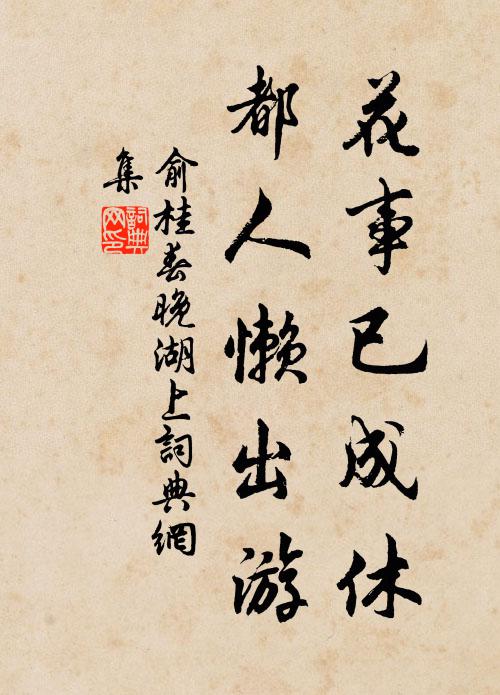 花事已成休
都人懒出游
俞桂春晚湖上詞典網
集
詞典网印